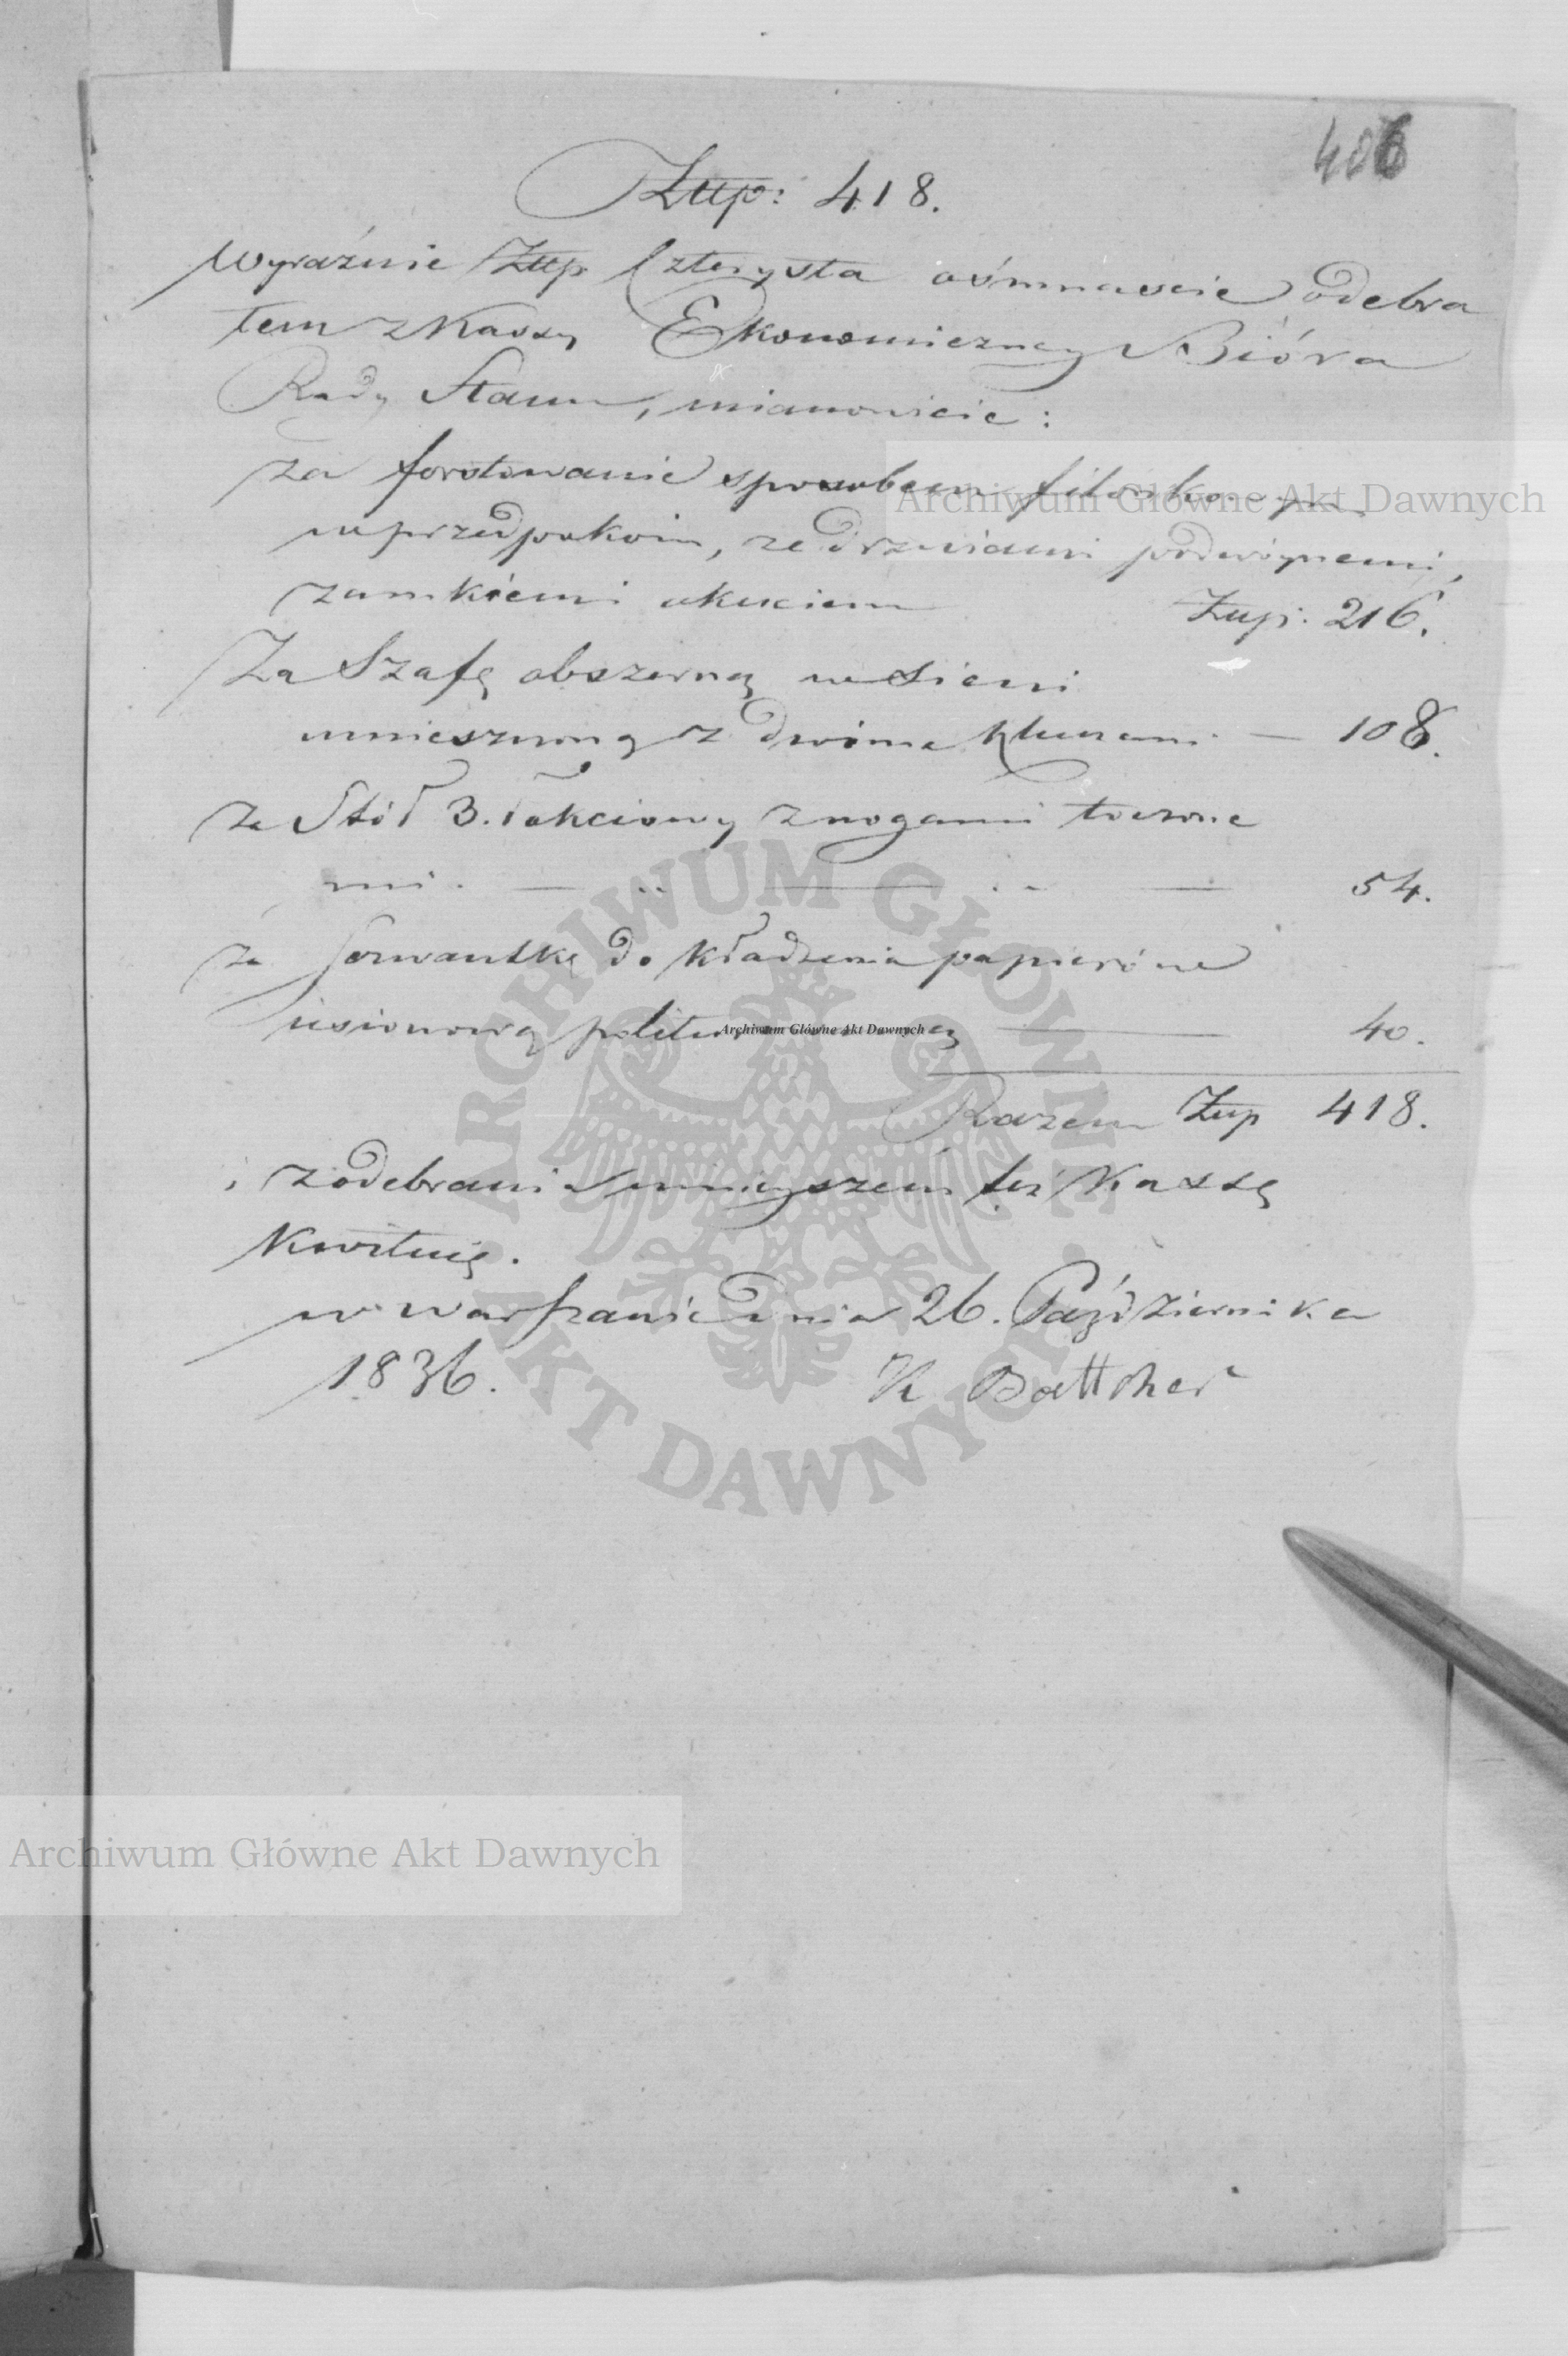 406
Złtp: 418.
Wyraźnie Złtp Czterysta ośmnaście odebra
łem z Kassy Ekonomiczney Bióra
Rady Stanu, mianowicie:
za forstowanie sposobem
w przedpokoiu, ze drzwiami podwóynemi,
zamkiem i okuciem Złtp: 216.
Za Szafę obszerną w Sieni
umieszczoną z dwóma kluczami — 108.
za Stół 3. łokciowy z nogami toczone
mi. — 54.
za Serwantkę do kładzenia papierów
jesionową — 40.
Razem Złtp 418.
i z odebrania ninieyszem też Kassę
Kwituię.
w Warszawie dnia 26. Października
1836. K Bottcher
Archiwum Główne Akt Dawnych
Archiwum Główne Akt Dawnych
ARCHIWUM GŁÓWNE AKT DAWNYCH
Archiwum Główne Akt Dawnych